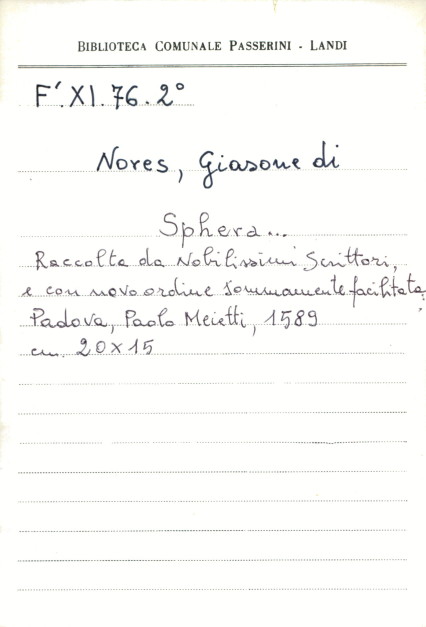 BIBLIOTECA COMUNALE PASSERINI - LANDI
F'.XI.76.2°
Nores, Giasone di
Sphera...
Raccolta da Nobilissimi Scrittori,
e con novo ordine sommamente facilitata.
Padova, Paolo Meietti, 1589
cm. 20x15